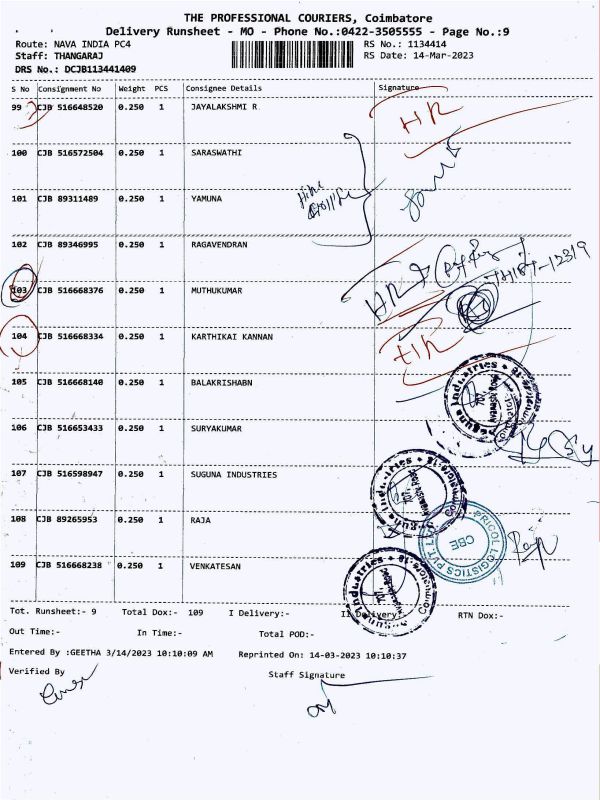 THE PROFESSIONAL COURIERS, Coimbatore
Delivery Runsheet - MO - Phone No.:0422-3505555 - Page No.:9
Route: NAVA INDIA PC4 RS No.: 1134414
Staff: THANGARAJ RS Date: 14-Mar-2023
DRS No.: DCJB113441409
S No Consignment No Weight PCS Consignee Details Signature
99 CJB 516648520 0.250 1 JAYALAKSHMI R HR
100 CJB 516572504 0.250 1 SARASWATHI
101 CJB 89311489 0.250 1 YAMUNA
102 CJB 89346995 0.250 1 RAGAVENDRAN
103 CJB 516668376 0.250 1 MUTHUKUMAR HR
104 CJB 516668334 0.250 1 KARTHIKAI KANNAN HR
105 CJB 516668140 0.250 1 BALAKRISHABN
106 CJB 516653433 0.250 1 SURYAKUMAR
107 CJB 516598947 0.250 1 SUGUNA INDUSTRIES
108 CJB 89265953 0.250 1 RAJA
PRICOL LOGISTICS PVT LTD
CBE
109 CJB 516668238 0.250 1 VENKATESAN
Tot. Runsheet:- 9 Total Dox:- 109 I Delivery:- II Delivery:- RTN Dox:-
Out Time:- In Time:- Total POD:-
Entered By :GEETHA 3/14/2023 10:10:09 AM Reprinted On: 14-03-2023 10:10:37
Verified By Staff Signature